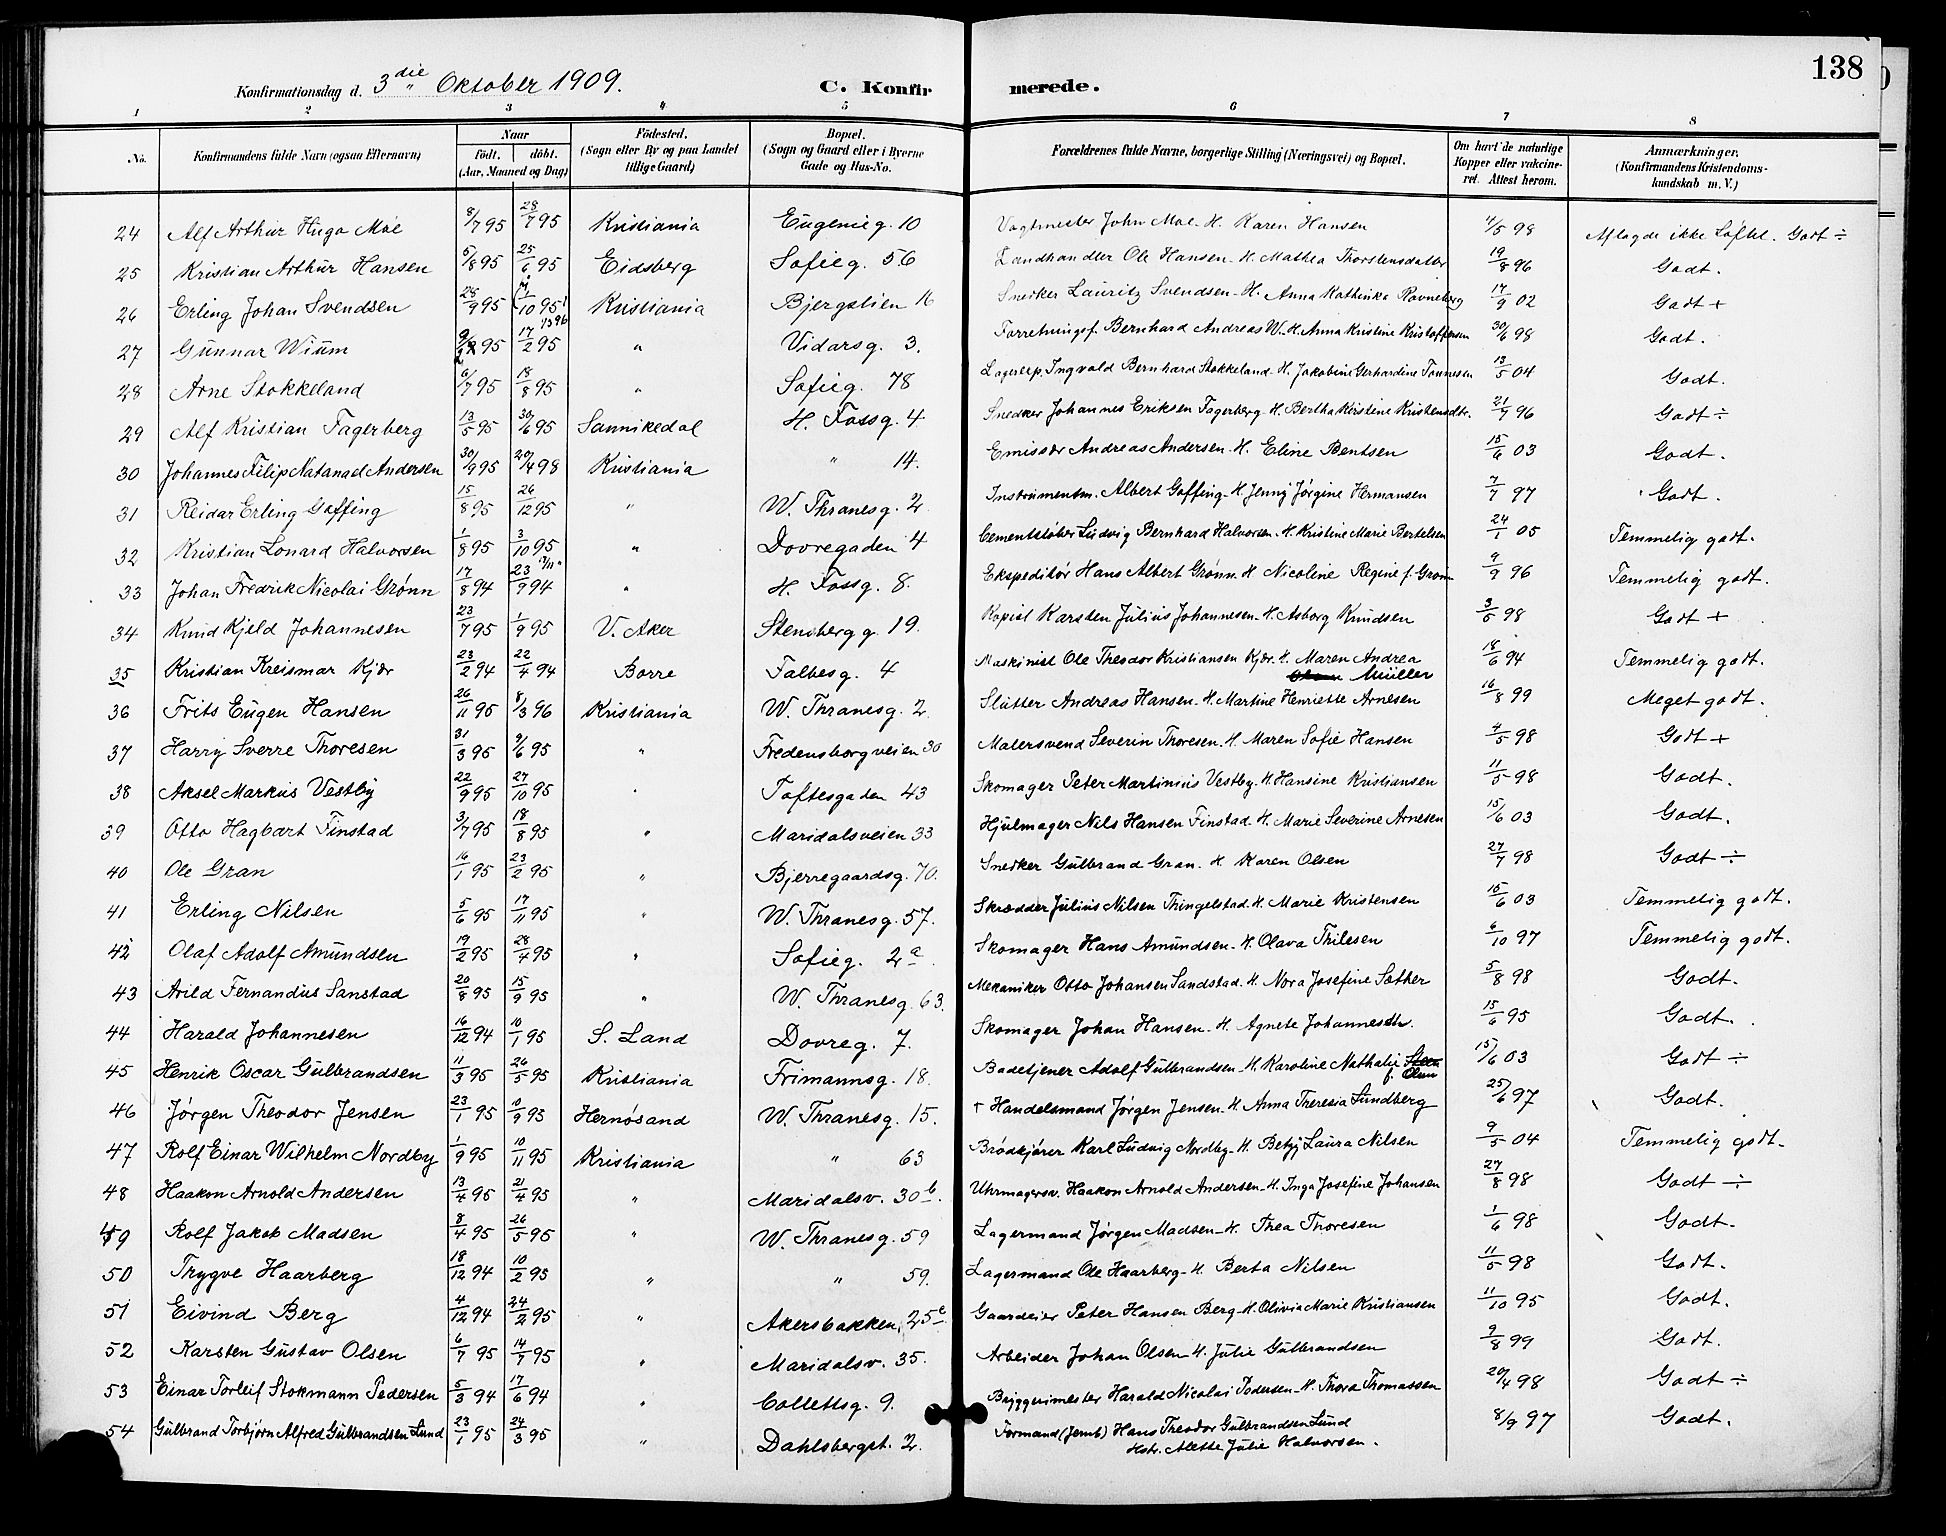 138
Konfirmationsdag d. 3die Oktober 1909. C. Konfirmerede.
1 2 3 4 5 6 7 8
No. Konfirmandens fulde Navn (ogsaa Efternavn) Naar födt. döbt. (Aar, Maaned og Dag) Födested. (Sogn eller By og paa Landet tillige Gaard) Bopæl. (Sogn og Gaard eller i Byerne Gade og Hus-No. Forældrenes fulde Navne, borgerlige Stilling (Næringsvei) og Bopæl. Om havt de naturlige Kopper eller vakcineret. Attest herom. Anmærkninger. (Konfirmandens Kristendomskundskab m. V.)
24 Alf Arthur Hugo Moe 8/7 95 28/7 95 Kristiania Eugenieg. 10 Vagtmester John Moe. H. Karen Hansen 11/5 98 Aflagde ikke Löfte. Godt ÷
25 Kristian Arthur Hansen 5/8 95 25/6 95 Eidsberg Sofieg. 56 Landhandler Ole Hansen. H. Mathea Thorstensdatter 19/8 96 Godt.
26 Erling Johan Svendsen 28/9 95 10 95 Kristiania Bjergstien 16 Snedker Lauritz Svendsen. H. Anna Kathinka Ravneberg 17/9 02 Godt +
27 Gunnar Wium 95 17/2 95 " Vidarsg. 3. Forretningsf. Bernhard Andreas W. H. Anna Kristine Kristoffersen 30/6 98 Godt.
28 Arne Stokkeland 6/7 95 18/8 95 " Sofieg. 78 Lagerexp. Ingvald Bernhard Stokkeland. H. Jakobine Gerhardine Tonnesen 13/5 04 Godt.
29 Alf Kristian Fagerberg 13/5 95 30/6 95 Sannikedal H. Fossg. 4 Snedker Johannes Eriksen Fagerberg. H. Bertha Kirstine Kristensdtr. 21/9 96 Godt ÷
30 Johannes Filip Natanael Andersen 30/9 95 20/4 98 Kristiania " 14. Emissær Andreas Andersen. H. Eline Bentsen 15/6 03 Godt.
31 Reidar Erling Goffing 15/8 95 26/12 95 " W. Thranesg. 2 Instrumentm. Albert Goffing. H. Jenny Jørgine Hermansen 7/7 97 Godt.
32 Kristian Lonard Halvorsen 1/8 95 3/10 95 " Dovregaden 4 Cementstøber Ludvig Bernhard Halvorsen. H. Kristine Marie Bertelsen 24/1 05 Temmelig godt.
33 Johan Fredrik Nicolai Grønn 17/8 94 23/9 94 " H. Fossg. 8. Ekspeditør Hans Albert Grønn. H. Nicoline Regine f. Grønn 9/9 96 Temmelig godt.
34 Knud Kjeld Johannesen 23/7 95 1/9 95 V. Aker Stensbergg. 19. Kopist Karsten Julius Johannesen. H. Asborg Knudsen 3/5 98 Godt +
35 Kristian Kreismar Kjær 23/2 94 22/4 94 Borre Falbesg. 4 Maskinist Ole Theodor Kristiansen Kjær. H. Maren Andrea Müller 18/6 94 Temmelig godt.
36 Frits Eugen Hansen 26/11 95 8/3 96 Kristiania W. Thranesg. 2 Slutter Andreas Hansen. H. Martine Henriette Arnesen 16/8 99 Meget godt.
37 Harry Sverre Thoresen 31/3 95 9/6 95 " Fredensborgveien 30 Malersvend Severin Thoresen. H. Maren Sofie Hansen 4/5 98 Godt +
38 Aksel Markus Vestby 22/9 95 27/10 95 " Toftesgaden 43 Skomager Peter Martinius Vestby. H. Hansine Kristiansen 11/5 98 Godt.
39 Otto Hagbart Finstad 3/7 95 18/8 95 " Maridalsveien 33 Hjulmager Nils Hansen Finstad. H. Marie Severine Arnesen 15/6 03 Godt.
40 Ole Gran 16/1 95 23/2 95 " Bjerregaardsg. 70. Snedker Gulbrand Gran. H. Karen Olsen 27/7 98 Godt ÷
41 Erling Nilsen 5/6 95 17/11 95 " W. Thranesg. 57. Skrædder Julius Nilsen Thingelstad. H. Marie Kristensen 15/6 03 Temmelig godt.
42 Olaf Adolf Amundsen 19/2 95 28/4 95 " Sofieg. 2a. Skomager Hans Amundsen. H. Olava Thilesen 6/10 97 Temmelig godt.
43 Arild Fernandus Sanstad 20/8 95 15/9 95 " W. Thranesg. 63. Mekaniker Otto Johansen Sandstad. H. Nora Josefine Sæther 5/8 98 Godt.
44 Harald Johannesen 16/12 94 10/1 95 S. Land Dovreg. 7. Skomager Johan Hansen. H. Agnete Johannesdtr. 15/6 95 Godt.
45 Henrik Oscar Gulbrandsen 11/3 95 26/5 95 Kristiania Frimannsg. 18. Badetjener Adolf Gulbrandsen. H. Karoline Nathalie f. Olsen 15/6 03 Godt ÷
46 Jørgen Theodor Jensen 23/1 95 10/9 95 Hernøsand W. Thranesg. 15. + Handelsmand Jørgen Jensen. H. Anna Theresia Lundberg 25/6 97 Godt.
47 Rolf Einar Wilhelm Nordby 1/9 95 10/11 95 Kristiania " 63 Brødkjører Karl Ludvig Nordby. H. Betzy Laura Nilsen 9/5 04 Temmelig godt.
48 Haakon Arnold Andersen 13/4 95 21/4 95 " Maridalsv. 30b. Uhrmagersv. Haakon Arnold Andersen. H. Inga Josefine Johansen 27/8 98 Godt ÷
49 Rolf Jakob Madsen 8/4 95 26/5 95 " W. Thranesg. 59 Lagermand Jørgen Madsen. H. Thea Thoresen 1/6 98 Godt.
50 Trygve Haarberg 18/12 94 10/2 95 " " 59. Lagermand Ole Haarberg. H. Berta Nilsen 11/5 98 Godt.
51 Eivind Berg 4/12 94 24/2 95 " Akersbakken, 25e Gaardeier Peter Hansen Berg. H. Olivia Marie Kristiansen 11/10 95 Godt.
52 Karsten Gustav Olsen 6/7 95 14/7 95 " Maridalsv. 35. Arbeider Johan Olsen. H. Julie Gulbrandsen 9/8 99 Godt.
53 Einar Torleif Stokmann Pedersen 5/3 94 17/6 94 " Collettsg. 9. Bryggerimester Harald Nicolai Pedersen. H. Thora Thomassen 20/4 98 Godt ÷
54 Gulbrand Torbjørn Alfred Gulbrandsen Lund 23/1 95 24/3 95 " Dahlsbergst. 2. Formand (Jernb) Hans Theodor Gulbrandsen Lund Hstr. Alette Julie Halvorsen. 8/9 97 Godt.